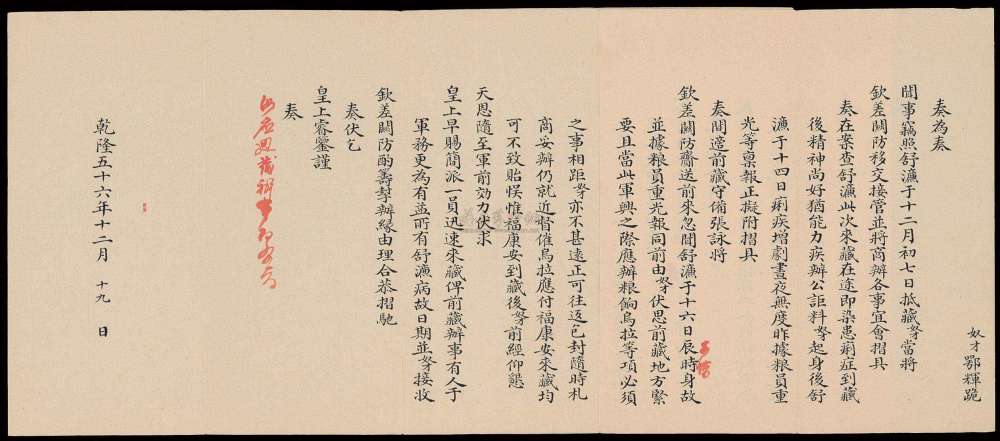 奴才鄂輝跪
奏為奏
聞事竊照舒濂于十二月初七日抵藏奴才當將
欽差關防移交接管並將商辦各事宜會摺具
奏在案查舒濂此次來藏在途即染患痢症到藏
後精神尚好猶能力疾辦公詎料奴才起身後舒
濂于十四日痢疾增劇晝夜無度昨據糧員重
光等稟報正擬附摺具
奏間適前藏守備張詠將
欽差關防齎送前來忽聞舒濂于十六日辰時身故
並據糧員重光報同前由奴才伏思前藏地方緊
要且當此軍興之際應辦糧餉烏拉等項必須
之事相距奴才亦不甚遠正可往返包封隨時札
商妥辦仍就近督催烏拉應付福康安來藏均
可不致貽悞惟福康安到藏後奴才前經仰懇
天恩隨至軍前効力伏求
皇上早賜簡派一員迅速來藏俾前藏辦事有人于
軍務更為有益所有舒濂病故日期並奴才接收
欽差關防酌籌辦緣由理合恭摺馳
奏伏乞
皇上睿鑒謹
奏
乾隆五十六年十二月 十九 日